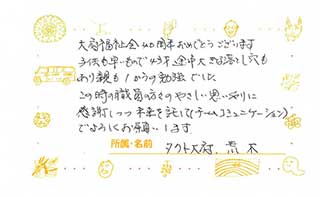 大府福祉会40周年おめでとうございます
子供も早いもので43才、途中大きな落とし穴も
あり親も1からの勉強でした
この時の職員の方々のやさしい思いやりに
感謝しつつ未来を託して(チームコミュニケーション)
でよろしくお願いします
所属・名前
タクト大府 荒木